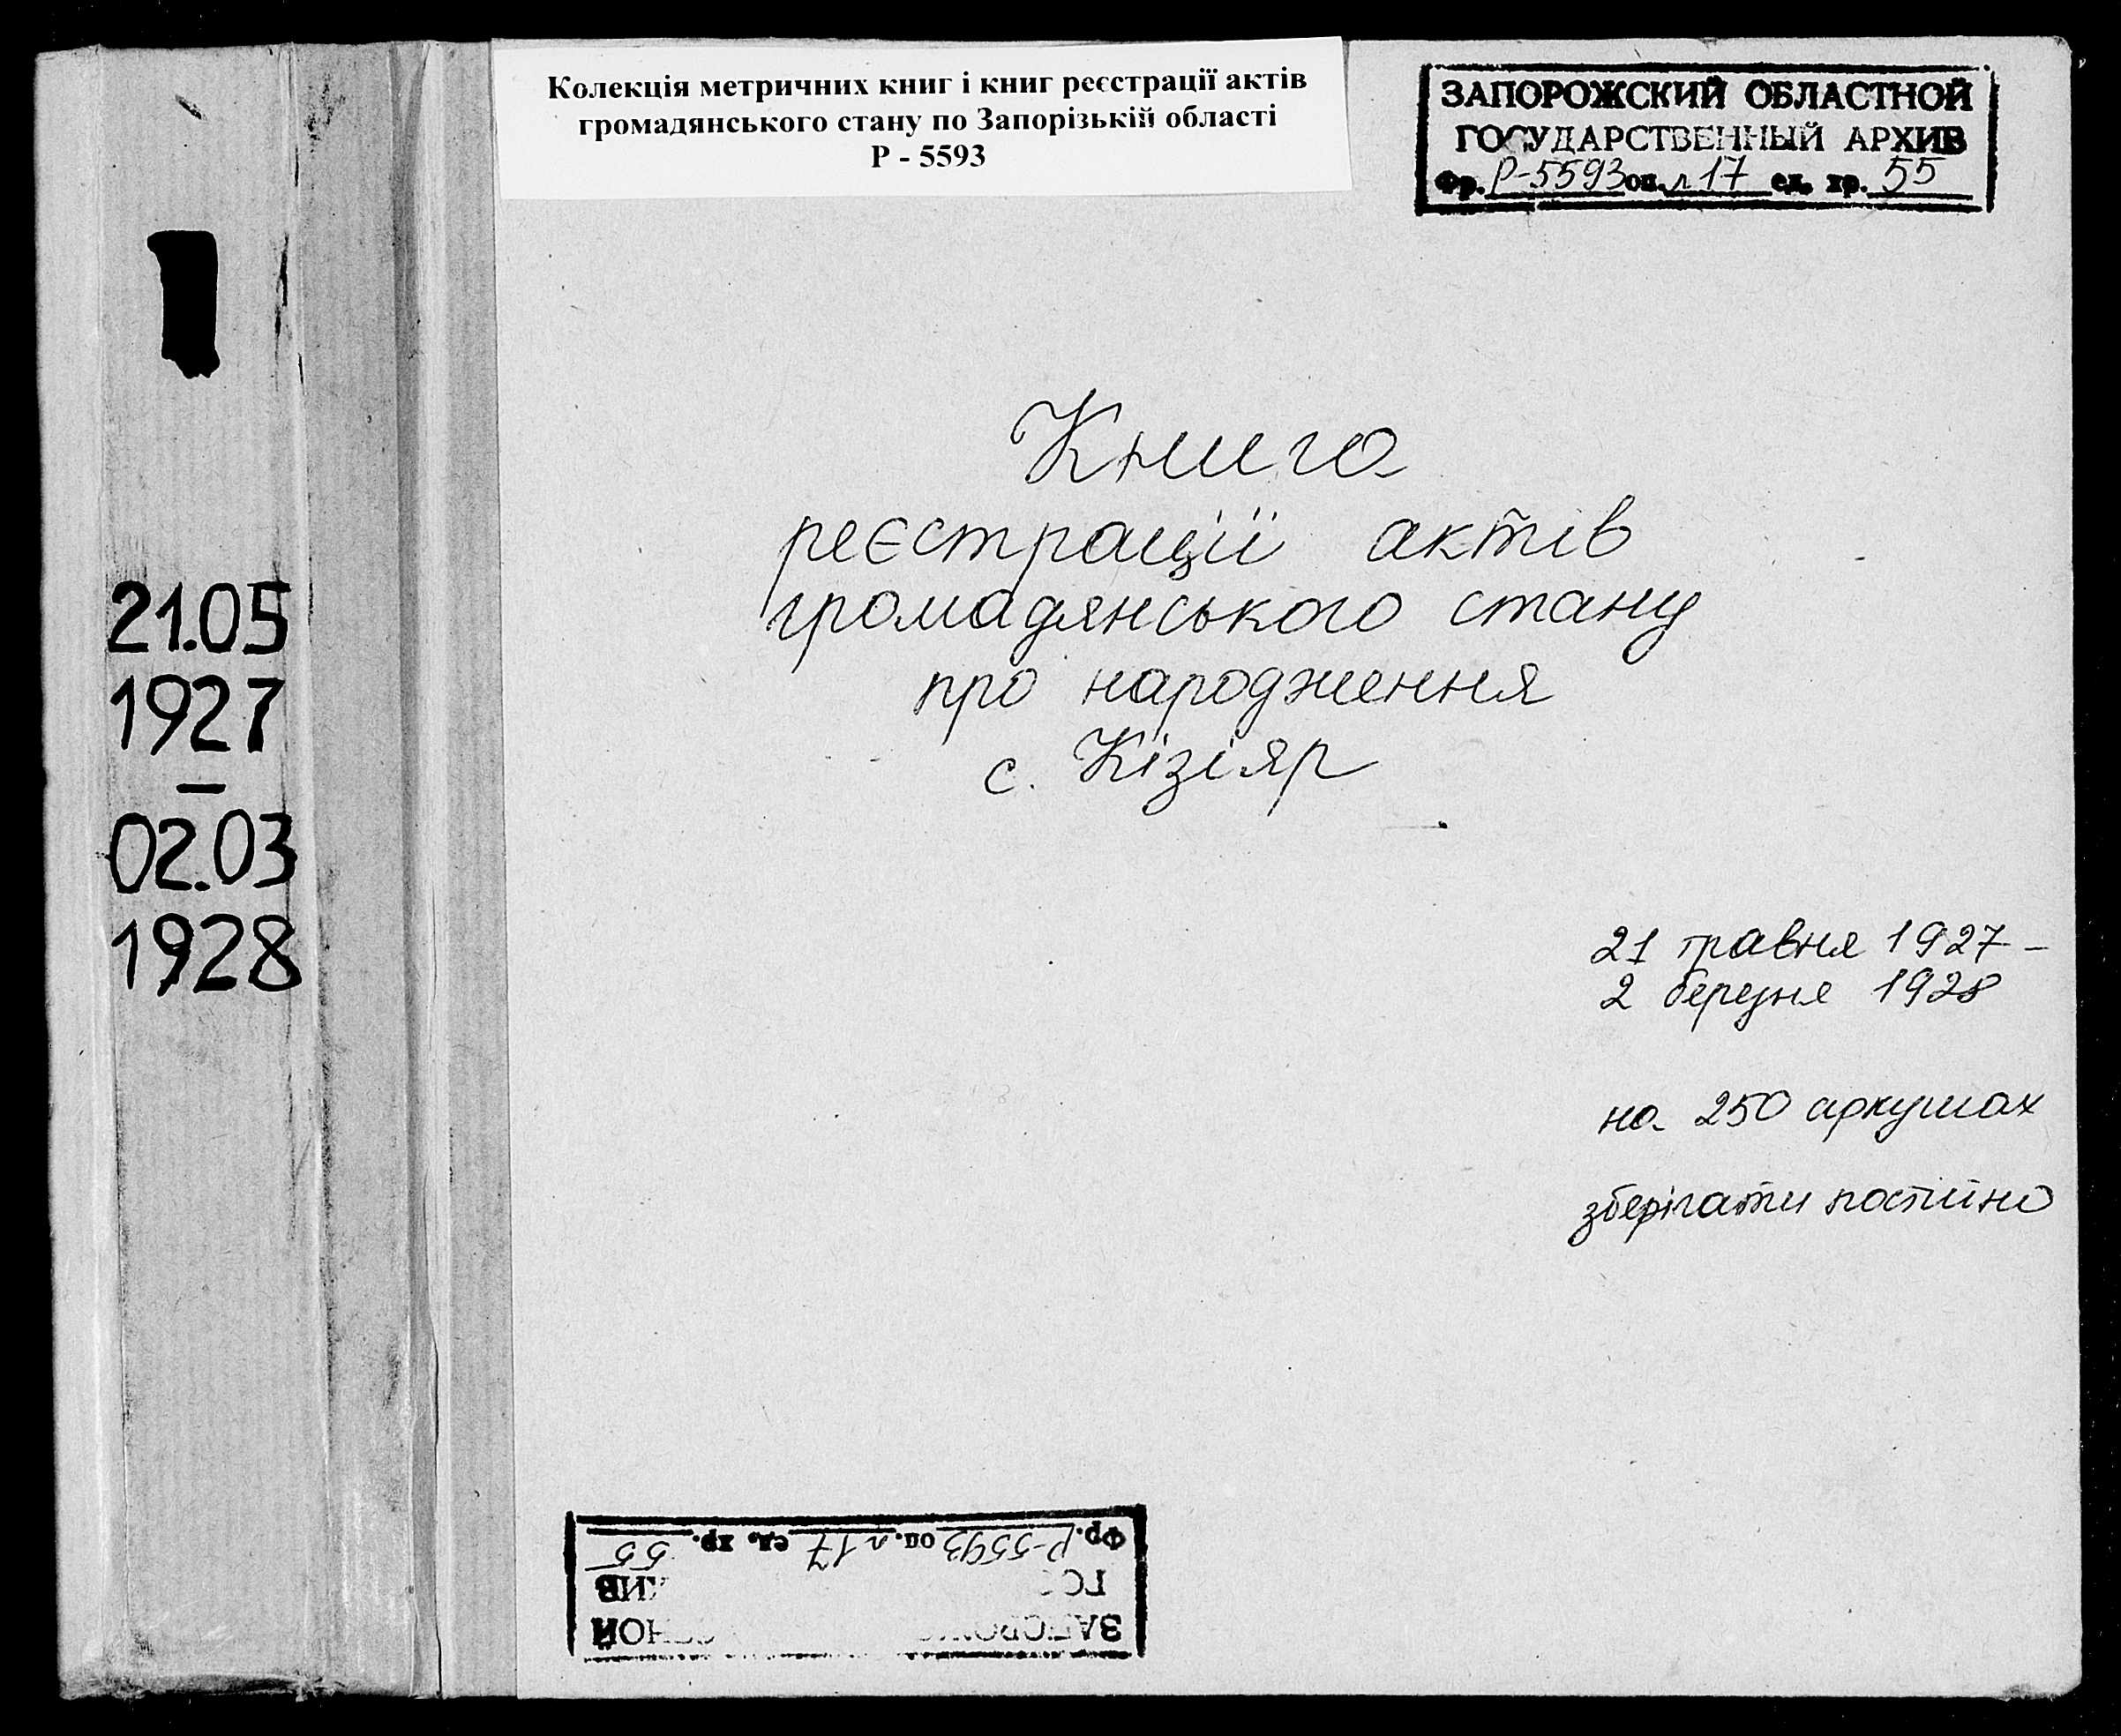 21.05
1927
—
02.03
1928
Колекція метричних книг і книг реєстрації актів
громадянського стану по Запорізькій області
Р - 5593
ЗАПОРОЖСКИЙ ОБЛАСТНОЙ
ГОСУДАРСТВЕННЫЙ АРХИВ
Фр. Р-5593 оп. л 17 ед. хр. 55
Книга
реєстрації актів
громадянського стану
про народження
с. Кізіяр
21 травня 1927 –
2 березня 1928
на 250 аркушах
зберігати постійно
Фр. Р-5593 оп. л 17 ед. хр. 55